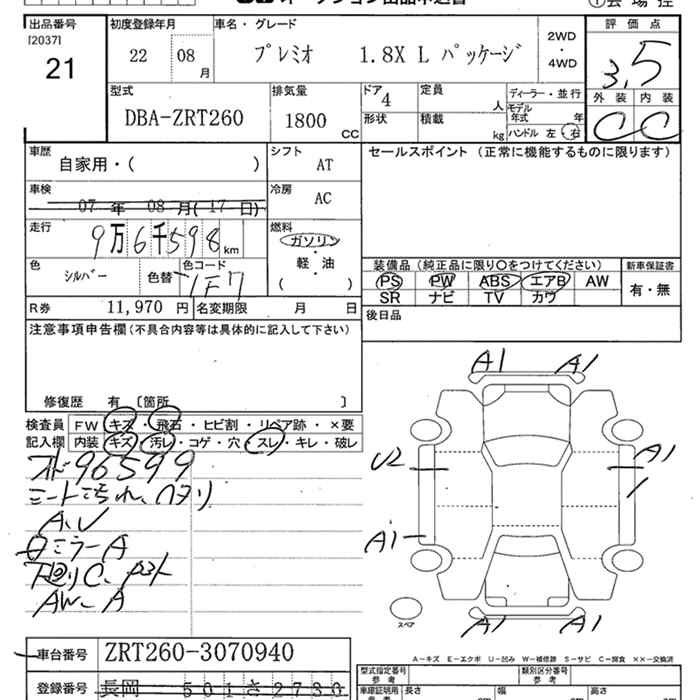 出品番号
[2037]
21
初度登録年月
22 08 月
車名・グレード
プレミオ 1.8X L パッケージ
2WD
・
4WD
評価点
3.5
外装 内装
C C
型式
DBA-ZRT260
排気量
1800 CC
ドア 4
形状
定員 人
積載 kg
ディーラー・並行
モデル
年式 年
ハンドル 左・右
車歴
自家用・( )
シフト AT
セールスポイント (正常に機能するものに限ります)
車検
07 年 08 月( 17 日)
冷房 AC
走行
9万6千598 km
燃料
ガソリン
・
軽・油
( )
色
シルバー
色替
色コード
1F7
装備品 (純正品に限り○をつけてください)
新車保証書
PS PW ABS エアB AW
SR ナビ TV カワ
有・無
R券 11,970 円
名変期限 月 日
後日品
注意事項申告欄 (不具合内容等は具体的に記入して下さい)
修復歴 有 [箇所 ]
検査員
記入欄
FW キズ・飛石・ヒビ割・リペア跡・×要
内装 キズ・汚レ・コゲ・穴・スレ・キレ・破レ
96599
シート汚れ、ヘタリ
A、U
ロミラーA
下廻りC、
AW-A
A1 A1
U2 A1
A1
A1 A1
スペア
車台番号 ZRT260-3070940
登録番号 長岡 501さ2730
A-キズ E-エクボ U-凹み W-補修跡 S-サビ C-腐食 ××-交換済
型式指定番号
参考
類別区分番号
参考
車庫証明用
長さ 幅 高さ